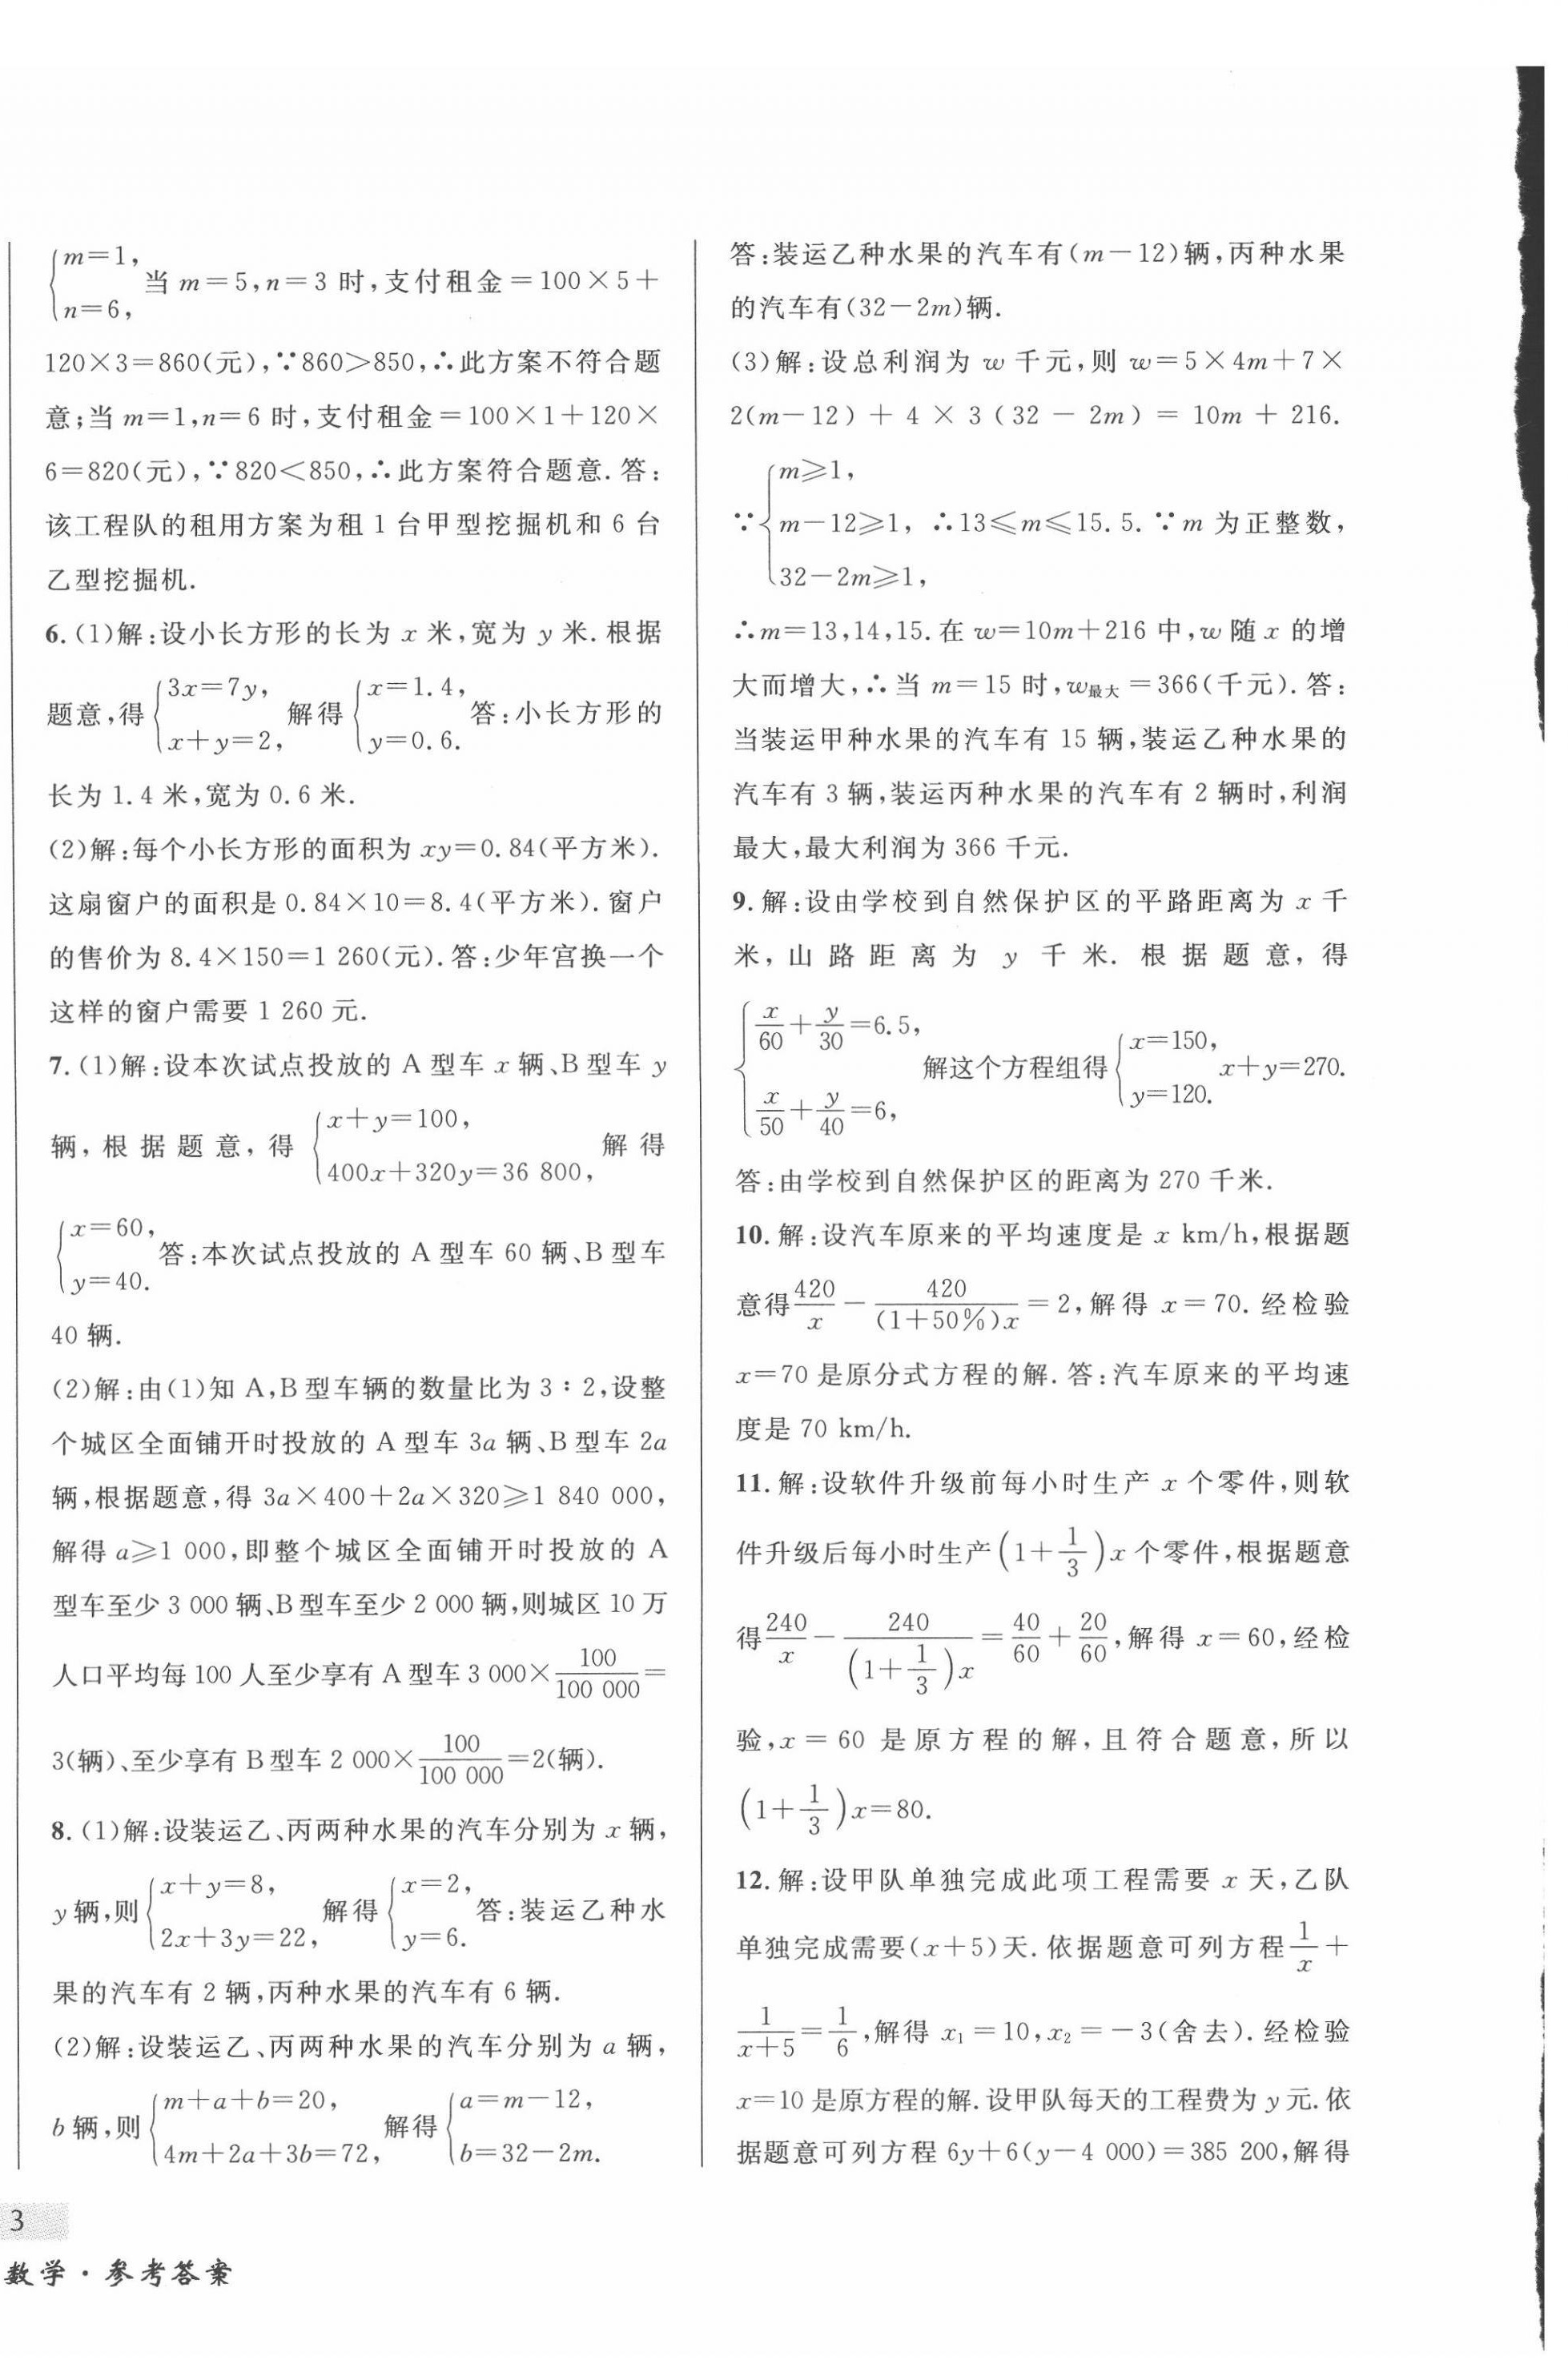 {m=1, n=6, 当 m=5,n=3 时,支付租金=100×5+
120×3=860(元),∵860>850,∴此方案不符合题
意;当 m=1,n=6 时,支付租金=100×1+120×
6=820(元),∵820<850,∴此方案符合题意.答:
该工程队的租用方案为租 1 台甲型挖掘机和 6 台
乙型挖掘机.
6.(1)解:设小长方形的长为 x 米,宽为 y 米.根据
题意,得{3x=7y, x+y=2, 解得{x=1.4, y=0.6. 答:小长方形的
长为 1.4 米,宽为 0.6 米.
(2)解:每个小长方形的面积为 xy=0.84(平方米).
这扇窗户的面积是 0.84×10=8.4(平方米).窗户
的售价为 8.4×150=1 260(元).答:少年宫换一个
这样的窗户需要 1 260 元.
7.(1)解:设本次试点投放的 A 型车 x 辆、B 型车 y
辆,根据题意,得{x+y=100, 400x+320y=36 800, 解得
{x=60, y=40. 答:本次试点投放的 A 型车 60 辆、B 型车
40 辆.
(2)解:由(1)知 A,B 型车辆的数量比为 3∶2,设整
个城区全面铺开时投放的 A 型车 3a 辆、B 型车 2a
辆,根据题意,得 3a×400+2a×320≥1 840 000,
解得 a≥1 000,即整个城区全面铺开时投放的 A
型车至少 3 000 辆、B 型车至少 2 000 辆,则城区 10 万
人口平均每 100 人至少享有 A 型车 3 000×100/100 000=
3(辆)、至少享有 B 型车 2 000×100/100 000=2(辆).
8.(1)解:设装运乙、丙两种水果的汽车分别为 x 辆,
y 辆,则{x+y=8, 2x+3y=22, 解得{x=2, y=6. 答:装运乙种水
果的汽车有 2 辆,丙种水果的汽车有 6 辆.
(2)解:设装运乙、丙两种水果的汽车分别为 a 辆,
b 辆,则{m+a+b=20, 4m+2a+3b=72, 解得{a=m-12, b=32-2m.
答:装运乙种水果的汽车有(m-12)辆,丙种水果
的汽车有(32-2m)辆.
(3)解:设总利润为 w 千元,则 w=5×4m+7×
2(m-12)+4×3(32-2m)=10m+216.
∵{m≥1, m-12≥1, 32-2m≥1, ∴13≤m≤15.5.∵m 为正整数,
∴m=13,14,15.在 w=10m+216 中,w 随 x 的增
大而增大,∴当 m=15 时,w最大=366(千元).答:
当装运甲种水果的汽车有 15 辆,装运乙种水果的
汽车有 3 辆,装运丙种水果的汽车有 2 辆时,利润
最大,最大利润为 366 千元.
9.解:设由学校到自然保护区的平路距离为 x 千
米,山路距离为 y 千米.根据题意,得
{x/60+y/30=6.5, x/50+y/40=6, 解这个方程组得{x=150, y=120. x+y=270.
答:由学校到自然保护区的距离为 270 千米.
10.解:设汽车原来的平均速度是 x km/h,根据题
意得420/x-420/(1+50%)x=2,解得 x=70.经检验
x=70 是原分式方程的解.答:汽车原来的平均速
度是 70 km/h.
11.解:设软件升级前每小时生产 x 个零件,则软
件升级后每小时生产(1+1/3)x 个零件,根据题意
得240/x-240/(1+1/3)x=40/60+20/60,解得 x=60,经检
验,x=60 是原方程的解,且符合题意,所以
(1+1/3)x=80.
12.解:设甲队单独完成此项工程需要 x 天,乙队
单独完成需要(x+5)天.依据题意可列方程1/x+
1/(x+5)=1/6,解得 x₁=10,x₂=-3(舍去).经检验
x=10 是原方程的解.设甲队每天的工程费为 y 元.依
据题意可列方程 6y+6(y-4 000)=385 200,解得
3
数学·参考答案